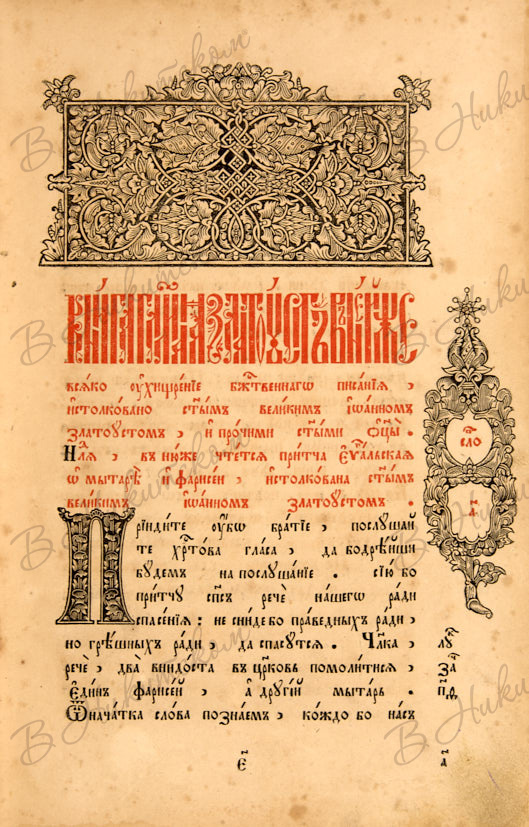 КНИ́ГА ГЛ҃ЕМАЯ ЗЛАТОꙊ́СТЪ В НЕ́ЙЖЕ
всѧ́ко ᲂу҆хищре́нїе бж҃т́веннагѡ писа́нїѧ ,
и҆столко́вано ст҃ы́мъ вели́кимъ і҆ѡа́нномъ
златоу́стомъ , и҆ про́чими ст҃ы́ми ѻ҆ц҃ы̀ .
Нл҃ѧ , в̾ ню́же чте́тсѧ при́тча є҆ѵⷢ҇альскаѧ
ѡ҆ мытарѣ̀ и҆ фарисе́и , и҆столко́вана ст҃ы́мъ
вели́кимъ і҆ѡа́нномъ златоу́стомъ .
Сло
а҃
Прїиди́те ᲂу҆́бѡ бра́тїе , послу́шай
те хр҃то́ва гла́са , да бодрѣ́йши
бу́демъ на послуша́нїе . сїю́ бо
при́тчу сп҃съ речѐ на́шегѡ ради
спасе́нїѧ : не сни́де бо пра́ведныхъ ра́ди ,
но грѣ́шныхъ ра́ди , да спасу́тсѧ . Чл҃ка ,
речѐ , два внидо́ста в̾ цр҃ковь помоли́тисѧ ,
є҆ди́нъ фарисе́й , а҆ другі́й мыта́рь .
Ѿнача́тка сло́ва позна́емъ , ко́ждо бо на́съ
лу
за
п҃ѳ
є҃
а҃
В Никитском